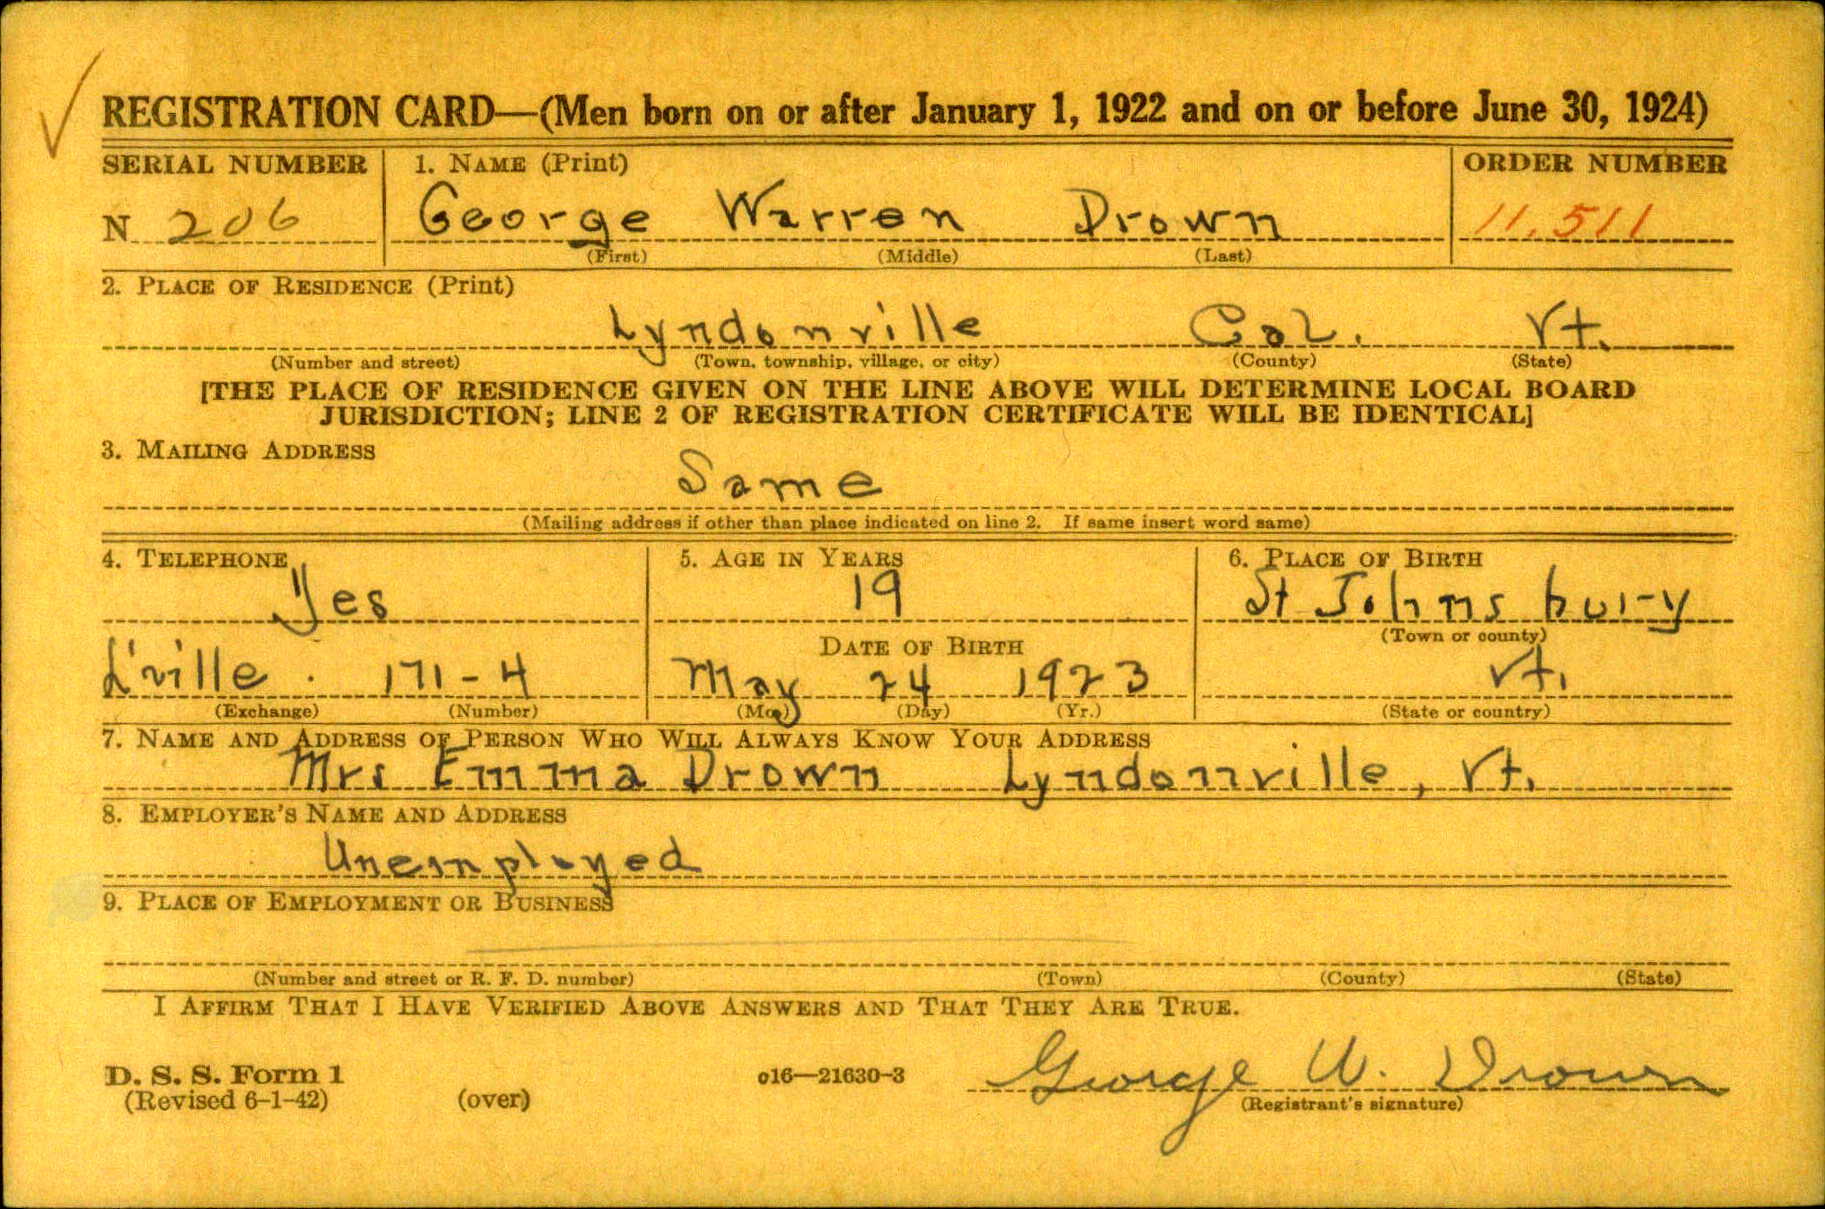 REGISTRATION CARD—(Men born on or after January 1, 1922 and on or before June 30, 1924)
SERIAL NUMBER 1. NAME (Print) ORDER NUMBER
N 206 George Warren Drown 11,511
(First) (Middle) (Last)
2. PLACE OF RESIDENCE (Print)
Lyndonville Cal. Vt.
(Number and street) (Town, township, village, or city) (County) (State)
[THE PLACE OF RESIDENCE GIVEN ON THE LINE ABOVE WILL DETERMINE LOCAL BOARD
JURISDICTION; LINE 2 OF REGISTRATION CERTIFICATE WILL BE IDENTICAL]
3. MAILING ADDRESS
Same
(Mailing address if other than place indicated on line 2. If same insert word same)
4. TELEPHONE 5. AGE IN YEARS 6. PLACE OF BIRTH
Yes 19 St Johnsbury
(Town or county)
DATE OF BIRTH
L'ville. 171-4 May 24 1923 Vt.
(Exchange) (Number) (Mo.) (Day) (Yr.) (State or country)
7. NAME AND ADDRESS OF PERSON WHO WILL ALWAYS KNOW YOUR ADDRESS
Mrs Emma Drown Lyndonville, Vt.
8. EMPLOYER'S NAME AND ADDRESS
Unemployed
9. PLACE OF EMPLOYMENT OR BUSINESS
(Number and street or R. F. D. number) (Town) (County) (State)
I AFFIRM THAT I HAVE VERIFIED ABOVE ANSWERS AND THAT THEY ARE TRUE.
D. S. S. Form 1 o16—21630-3 George W. Drown
(Revised 6-1-42) (over) (Registrant's signature)